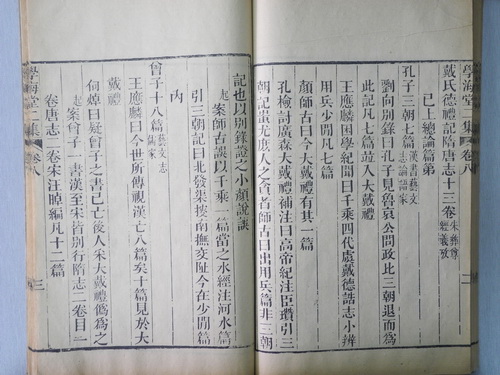 學海堂二集 卷八 二
戴氏德禮記隋唐志十三卷 朱彝尊
經義攷
已上總論篇第
孔子三朝七篇 漢書藝文
志論語家
劉向別錄曰孔子見魯哀公問政比三朝退而為
此記凡七篇並入大戴禮
王應麟困學紀聞曰千乘四代虞戴德誥志小辨
用兵少閒凡七篇
顏師古曰今大戴禮有其一篇
孔檢討廣森大戴禮補注曰高帝紀注臣瓚引三
朝記蚩尤庶人之貪者師古曰出用兵篇非三朝
記也以別錄證之小顏說誤
起案師古誤以千乘一篇當之水經注河水篇
引三朝記曰北發渠搜南撫交阯今在少閒篇
內
曾子十八篇 藝文志
儒家
王應麟曰今世所傳視漢亡八篇矣十篇見於大
戴禮
何焯曰疑曾子之書已亡後人采大戴禮偽為之
起案曾子一書漢至宋皆別行隋志二卷目一
卷唐志二卷宋汪晫編凡十二篇
學海堂二集 卷八 三